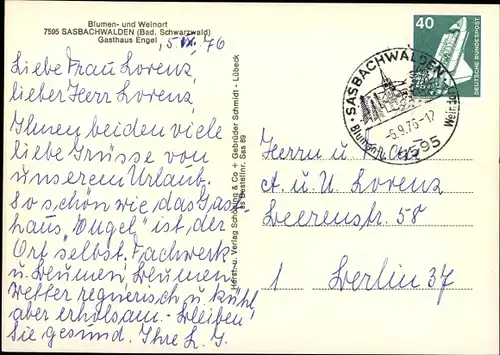 Blumen- und Weinort
7595 SASBACHWALDEN (Bad. Schwarzwald)
Gasthaus Engel
5. IX. 76
Liebe Frau Lorenz,
lieber Herr Lorenz,
Ihnen beiden viele
liebe Grüsse von
unserem Urlaub.
So schön wie das Gast-
haus "Engel" ist, der
Ort selbst. Fachwerk
u. Blumen, Blumen.
Wetter regnerisch u. kühl,
aber erholsam. - Bleiben
Sie gesund. Ihre L. G.
Herst. u. Verlag Schöning & Co. + Gebrüder Schmidt - Lübeck
Bestellnr. Sas 89
40
DEUTSCHE BUNDESPOST
SASBACHWALDEN
Blumen- u. Weindorf
-6.9.76-17
7595
Herrn u. Frau
A. u. U. Lorenz
Beerenstr. 58
1 Berlin 37